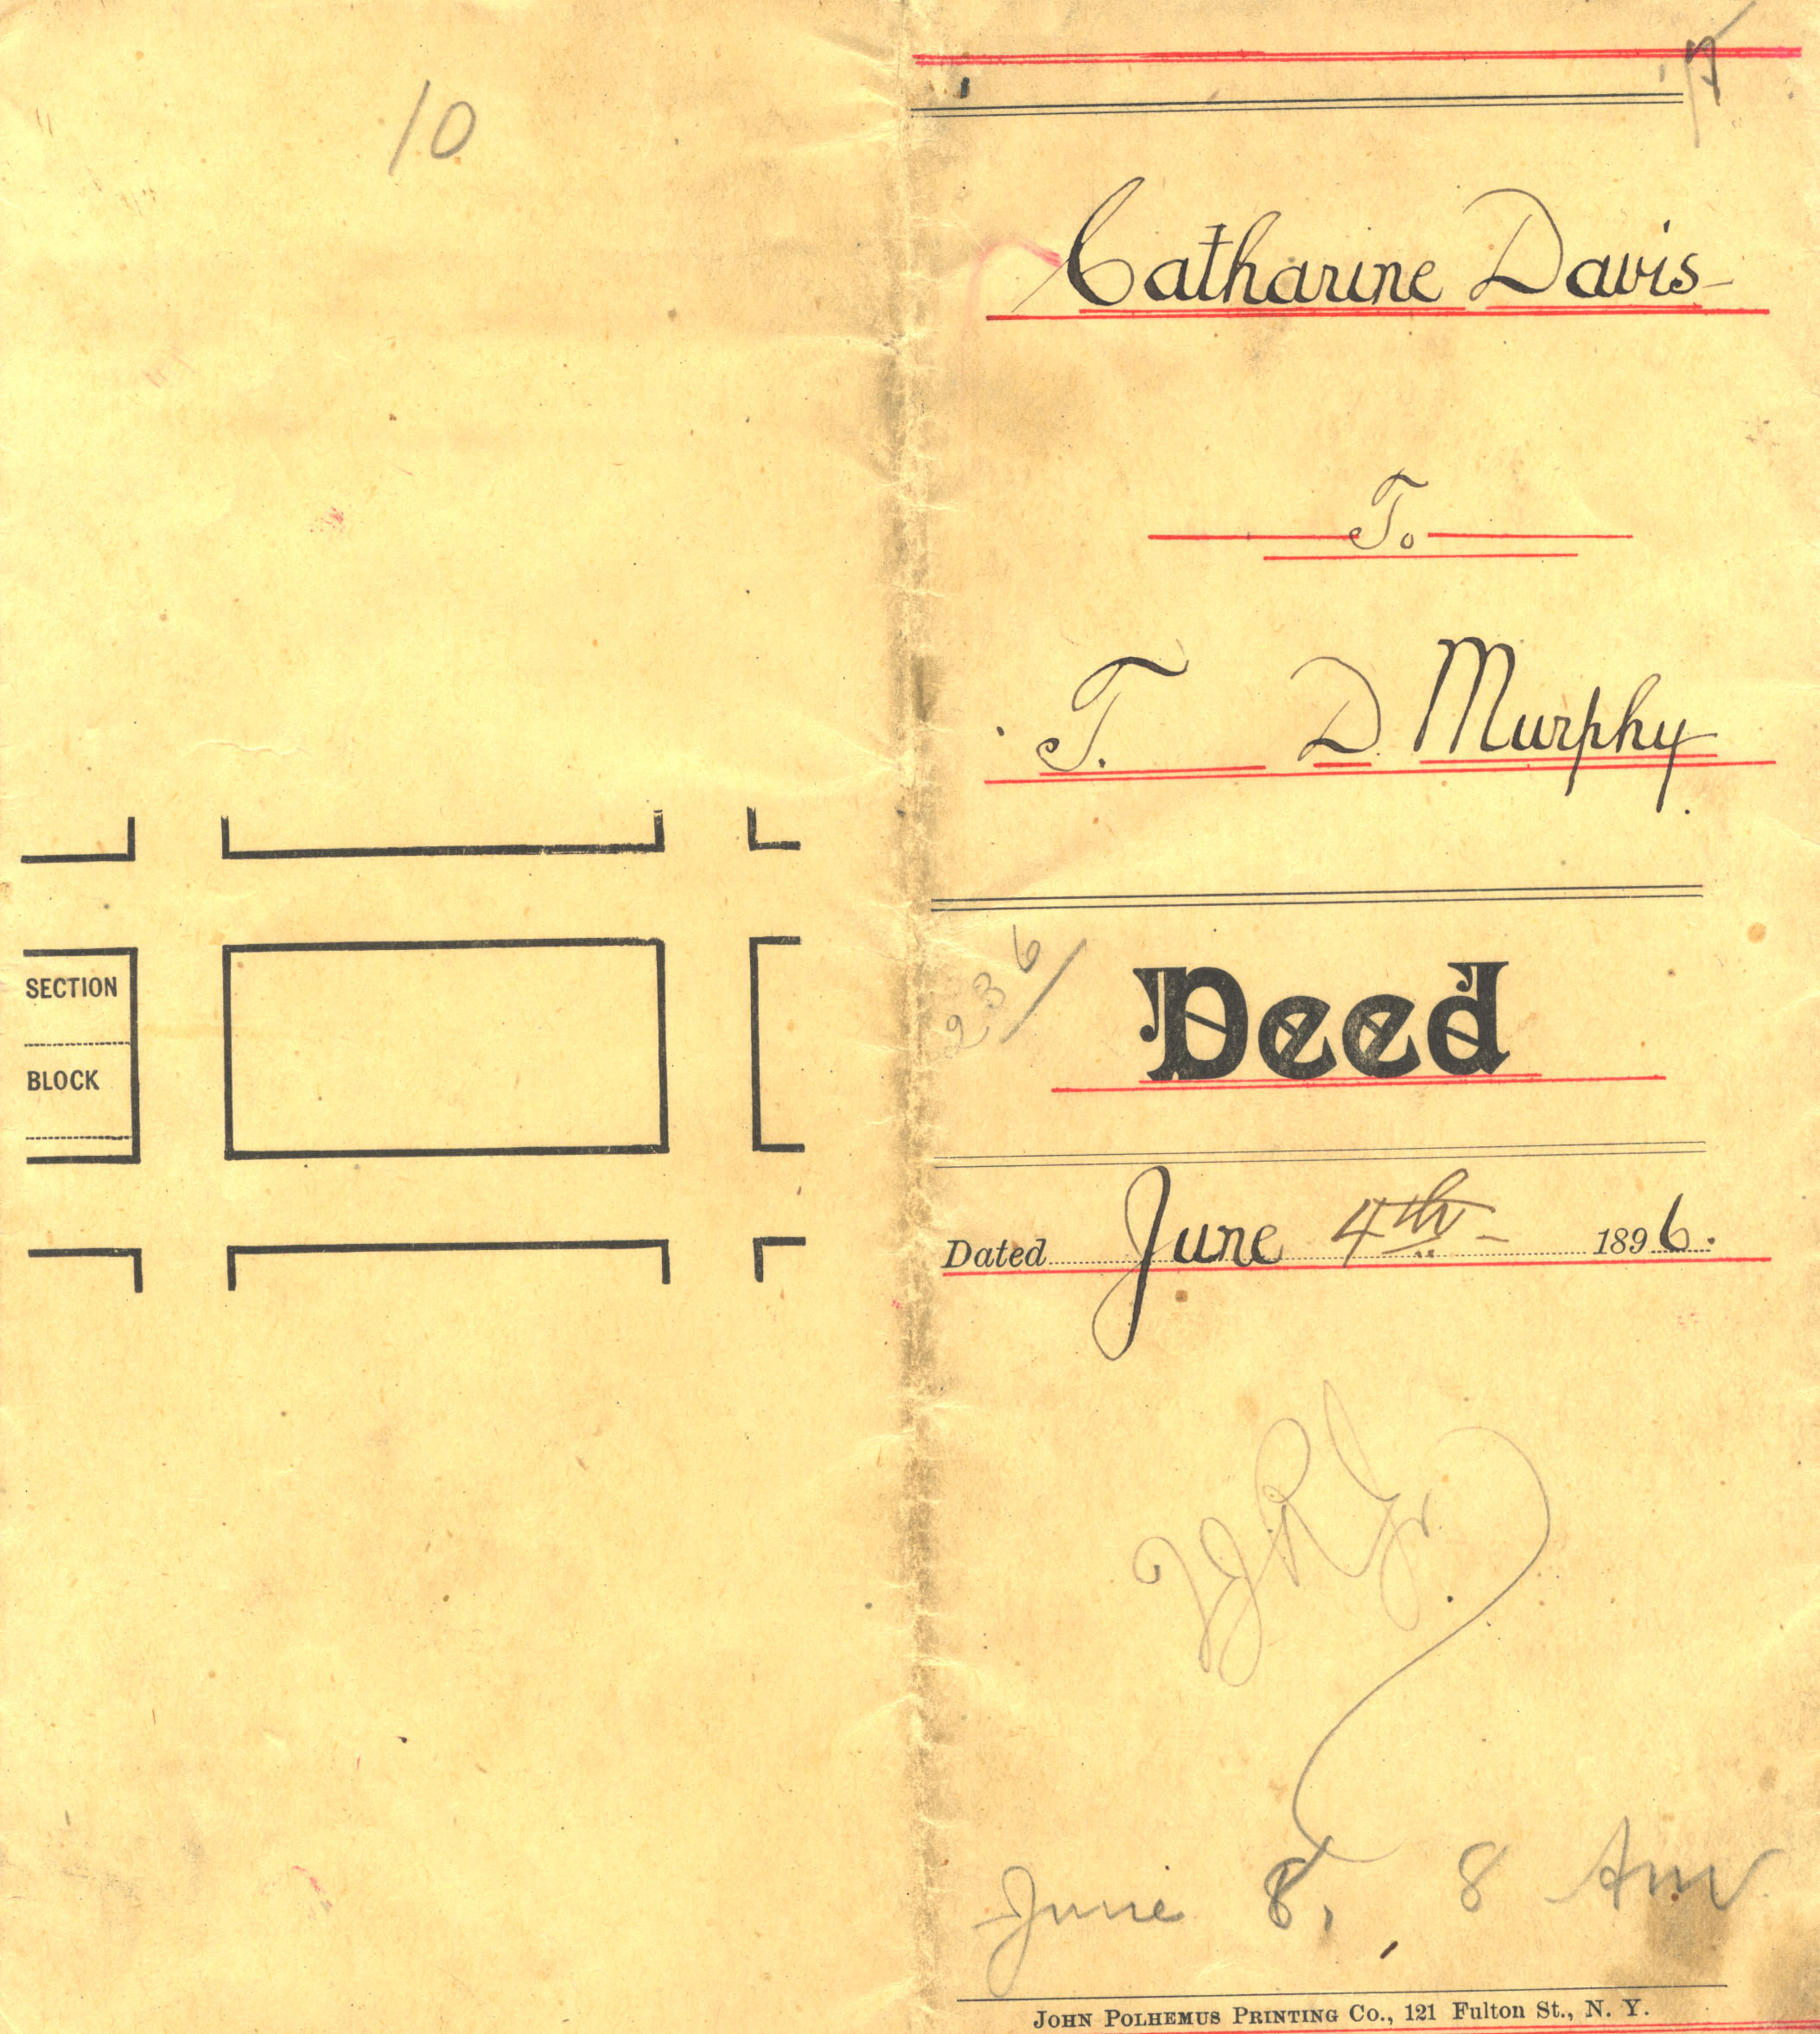 10
SECTION
BLOCK
Catharine Davis
To
T. D. Murphy
236
Deed
Dated June 4th 1896.
June 8, 8 AM
JOHN POLHEMUS PRINTING CO., 121 Fulton St., N. Y.